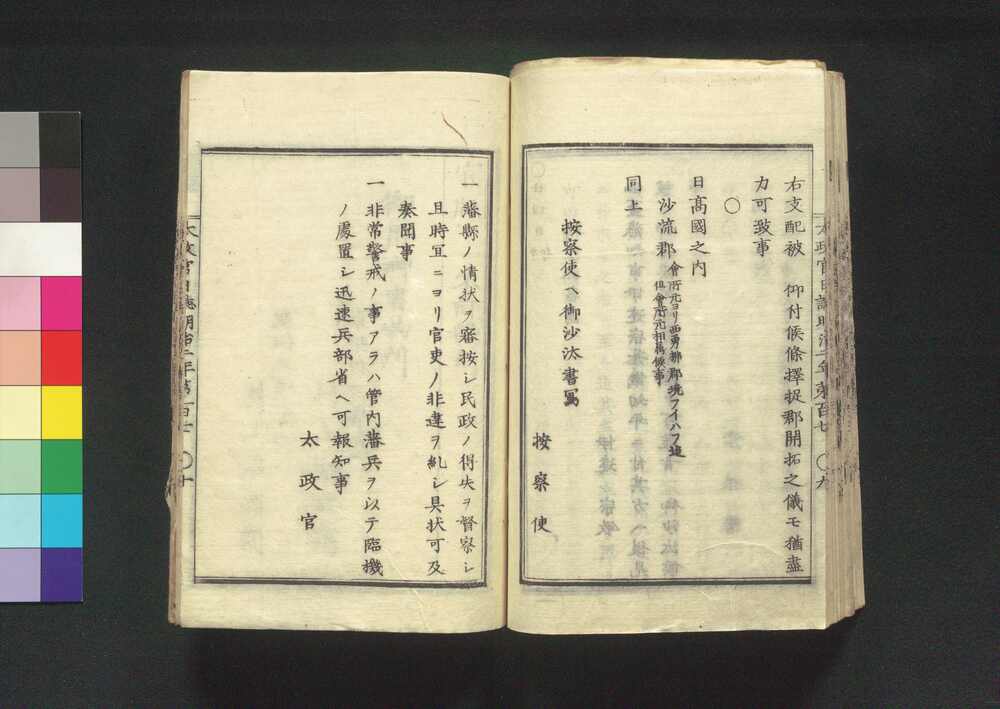 右支配被 仰付候條擇捉郡開拓之儀モ猶盡
力可致事
○
日髙國之内
沙流郡 會所元ヨリ西勇拂郡境フイハフ迄
但會所元相属候事
同上
按察使ヘ御沙汰書寫
按察使
一藩縣ノ情状ヲ審按シ民政ノ得失ヲ督察シ
且時宜ニヨリ官吏ノ非違ヲ糺シ具状可及
奏聞事
一非常警戒ノ事アラハ管内藩兵ヲ以テ臨機
ノ處置シ迅速兵部省ヘ可報知事
太政官